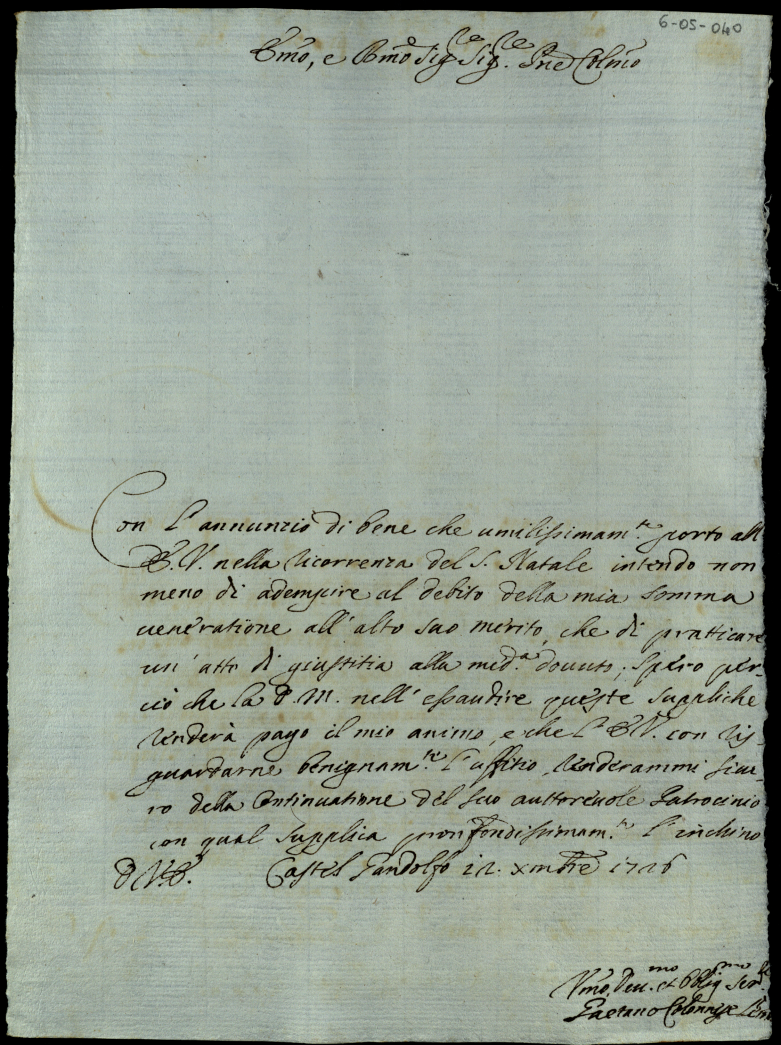 6-05-040
Emo, e Rmo Sig.re Sig.re Pne Colmo
Con l'annunzio di bene che umilissimam.te porto all
E.V. nella ricorrenza del S. Natale intendo non
meno di adempire al debito della mia somma
ueneratione all'alto suo merito, che di pratticare
un'atto di giustitia alla med.a douuto; Spero per-
ciò che la D.M. nell'essaudire queste suppliche
renderà pago il mio animo, e che l'E.V. con ris-
guardarne benignam.te l'uffitio, renderammi sicu-
ro della Continuatione del suo auttoreuole Patrocinio
con qual supplica profondissimam.te l'inchino
D.V.E. Castel Gandolfo 12. Xmbre 1726
Vmo, Deu.mo et Obblig.mo Ser.
Gaetano